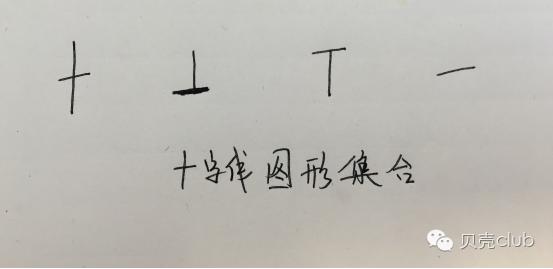 十字线图形集合
贝壳club